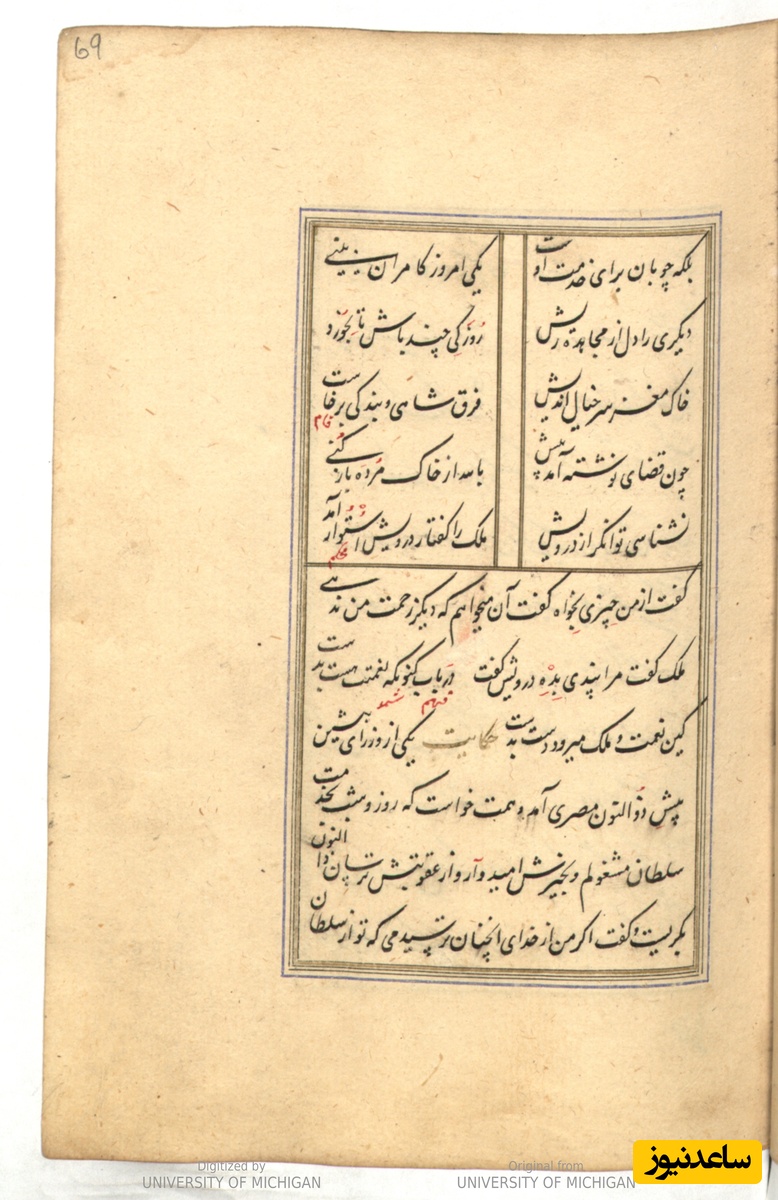 69
بلکه چوپان برای خدمت اوست یکی امروز کامران بینی
دیگری را دل از مجاهده ریش روزکی چند باش تا بخورد
خاک مغز سر خیال اندیش فرق شاهی و بندکی برخاست
چون قضای نوشته آمد پیش
نشناسی توانکر از درویش ملک را کفتار درویش استوار آمد
محکم
کفت از من چیزی بخواه کفت آن میخواهم که دیکر زحمت من ندهی
ملک کفت مرا پندی بده درویش کفت دریاب کنونکه نعمتت هست بدست
کین نعمت و ملک میرود دست بدست حکایت یکی از وزرای پیشین
پیش ذوالنون مصری آمد و همت خواست که روز و شب بخدمت
سلطان مشغولم و بخیرش امیدوار و از عقوبتش ترسان ذوالنون
بکریست و کفت اکر من از خدای انچنان ترسیدمی که تو از سلطان
Digitized by Original from
UNIVERSITY OF MICHIGAN UNIVERSITY OF MICHIGAN
ساعدنیوز